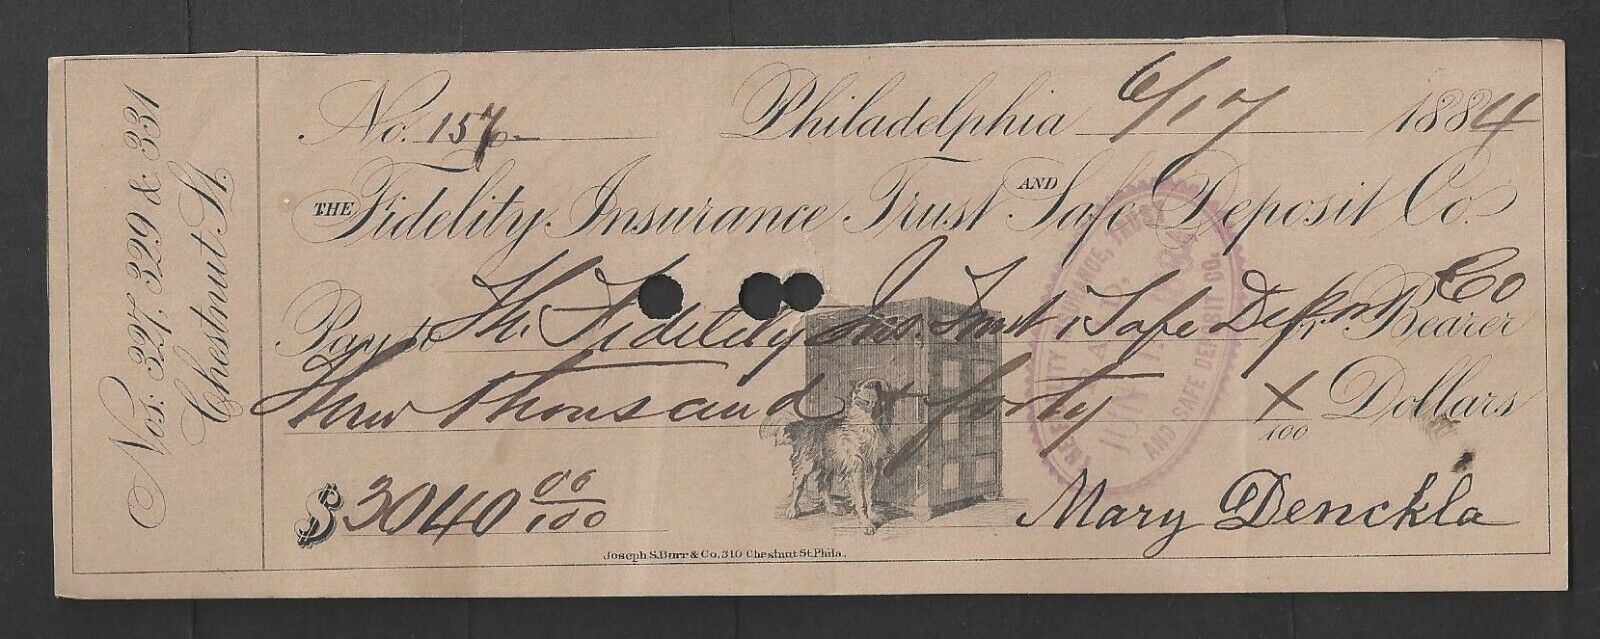 Nos: 327, 329 & 331
Chestnut St.
No. 157 Philadelphia 6/17 1884
THE Fidelity Insurance Trust AND Safe Deposit Co.
Pay to The Fidelity Ins. Trust & Safe Deposit Co or Bearer
Three Thousand & forty x/100 Dollars
$3040 00/100 Mary Denckla
Joseph S. Burr & Co, 310 Chestnut St. Phila.
FIDELITY INSURANCE, TRUST
AND SAFE DEPOSIT CO.